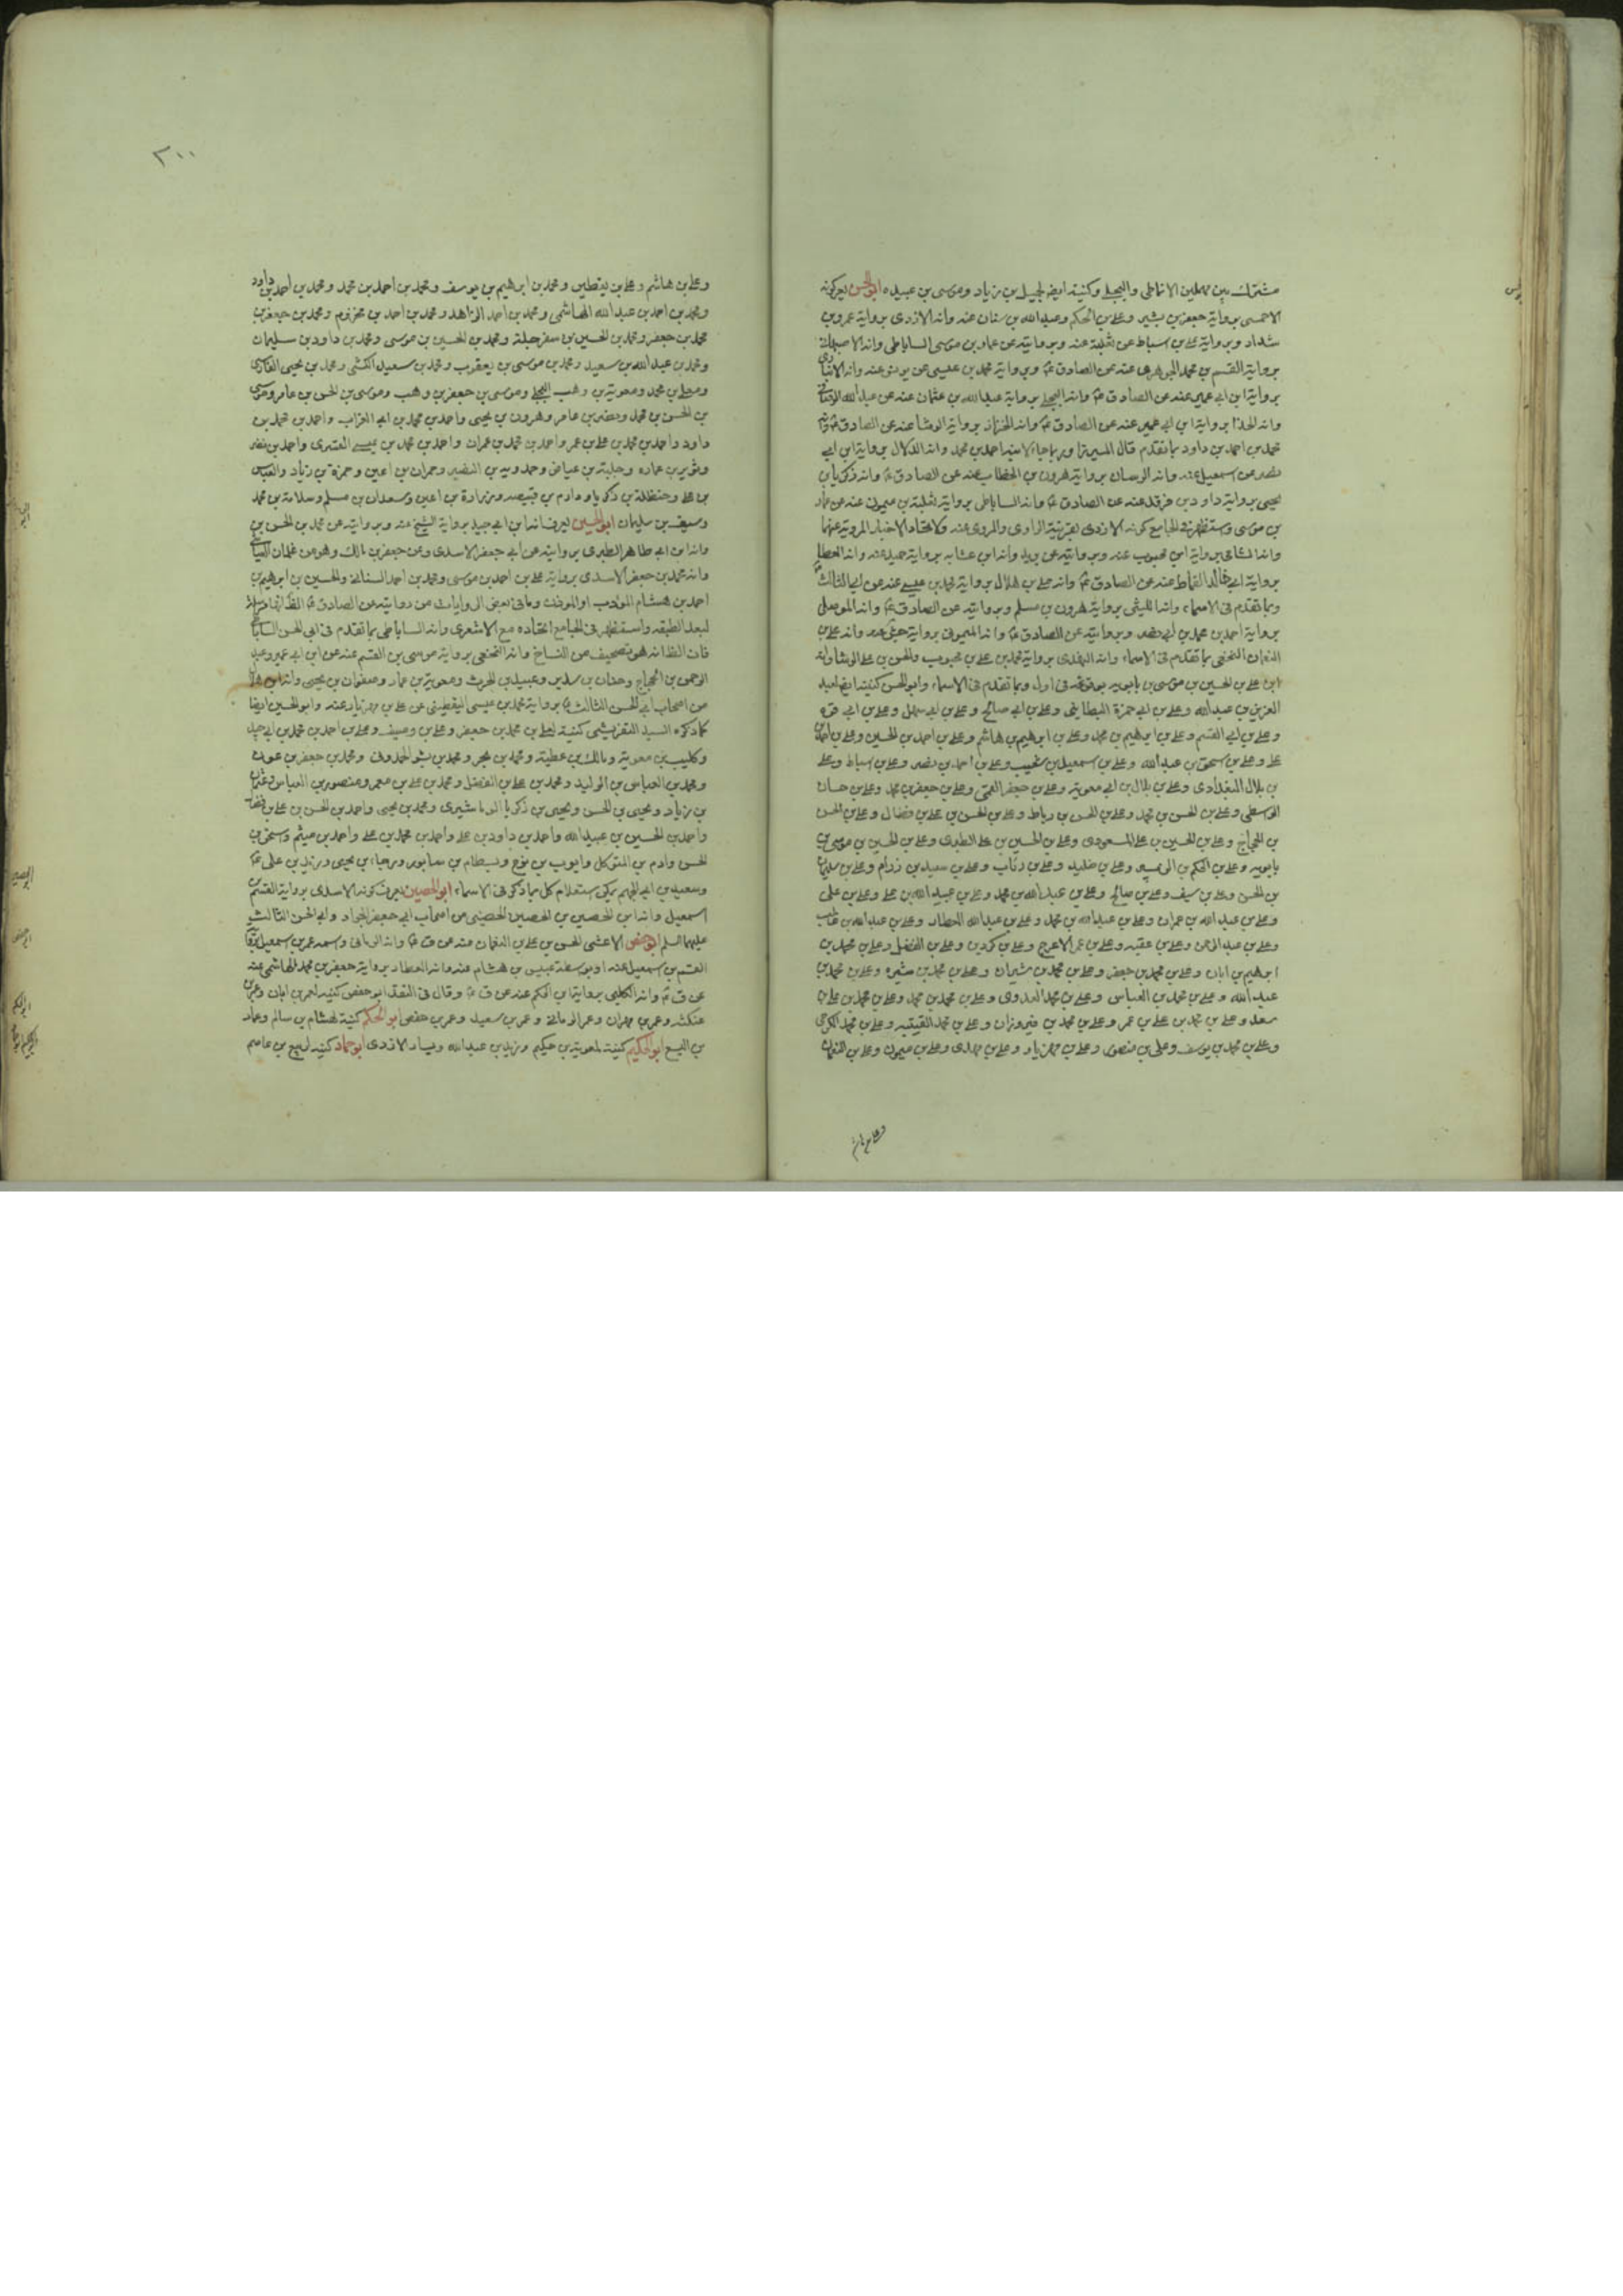 مشترك بين مهملين الانماطى والبجلى وكنيته ايض لجميل بن زياد وموسى بن عبيده ابو الحسن يعرف كونه
الاحمسى برواية جعفر بن بشير وعلى بن الحكم وعبد الله بن سنان عنه وانه الازدى برواية عمرو بن
شداد وبرواية على بن اسباط عن ثعلبة عنه وبروايته عن عمار بن موسى الساباطى وانه الاصبهانى
برواية القسم بن محمد الجوهرى عنه عن الصادق ع وبرواية محمد بن عيسى عن يونس عنه وانه الانبارى
برواية ابن ابى عمير عنه عن الصادق ع وانه البجلى برواية عبد الله بن عثمان عنه عن عبد الله
وانه الحذا برواية ابن ابى عمير عنه عن الصادق ع وانه الخزاز برواية الوشا عنه عن الصادق ع وانه
محمد بن احمد بن داود بما تقدم قال الميرزا وربما جاء لابنه احمد بن محمد وانه الدلال برواية ابن ابى
نصر عن اسمعيل عنه وانه الرسان برواية هرون بن الخطاب عنه عن الصادق ع وانه زكريا بن
يحيى برواية داود بن فرقد عنه عن الصادق ع وانه الساباطى برواية ثعلبة بن ميمون عنه عن عمار
بن موسى واستظهر فى الجامع كونه الازدى بقرينة الراوى والمروى عنه ولاتحاد الاخبار المروية عنهما
برواية ابن محبوب عنه وبروايته عن بريد وانه ابن عشابه برواية حميد عنه وانه العطار
برواية ابى خالد القماط عنه عن الصادق ع وانه على بن هلال برواية محمد بن عيسى عنه عن ابى الثالث
وبما تقدم فى الاسماء وانه الليثى برواية هرون بن مسلم وبروايته عن الصادق ع وانه الموصلى
برواية احمد بن محمد بن ابى نصر وبروايته عن الصادق ع وانه الميمونى برواية عنه وانه على بن
النعمان النخعى بما تقدم فى الاسماء وانه النهدى برواية محمد بن على بن محبوب والحسن بن على الوشا وانه
ابن على بن الحسين بن موسى بن بابويه بوقوعه فى اول وبما تقدم فى الاسماء وابو الحسن كنيته ايضا لعبد
العزيز بن عبد الله وعلى بن ابى حمزة البطاينى وعلى بن ابى صالح وعلى بن ابى سهل وعلى بن ابى قره
وعلى بن ابى القسم وعلى بن ابرهيم بن محمد وعلى بن ابرهيم بن هاشم وعلى بن احمد بن الحسين وعلى بن احمد بن
على وعلى بن اسحق بن عبد الله وعلى بن اسمعيل بن شعيب وعلى بن احمد بن نصر وعلى بن اسباط وعلى
بن بلال البغدادى وعلى بن بلال بن ابى معويه وعلى بن جعفر القمى وعلى بن جعفر بن محمد وعلى بن حسان
الوسطى وعلى بن الحسن بن محمد وعلى بن الحسن بن رباط وعلى بن الحسن بن على بن فضال وعلى بن الحسن
بن الحجاج وعلى بن الحسين بن على المسعودى وعلى بن الحسين بن على الطبرى وعلى بن الحسين بن موسى بن
بابويه وعلى بن الحكم بن الزبير وعلى بن خليد وعلى بن رئاب وعلى بن سعيد بن رزام وعلى بن سليمان
بن الحسن وعلى بن سيف وعلى بن صالح وعلى بن عبد الله بن محمد وعلى بن عبيد الله بن على وعلى بن على
وعلى بن عبد الله بن عمران وعلى بن عبد الله بن محمد وعلى بن عبد الله العطار وعلى بن عبد الله بن غالب
وعلى بن عبد الرحمن وعلى بن عقبه وعلى بن عمر الاعرج وعلى بن كردين وعلى بن الفضل وعلى بن محمد بن
ابرهيم بن ابان وعلى بن محمد بن جعفر وعلى بن محمد بن شيران وعلى بن محمد بن شيره وعلى بن محمد بن
عبد الله وعلى بن محمد بن العباس وعلى بن محمد العدوى وعلى بن محمد بن محمد وعلى بن محمد بن على بن
سعد وعلى بن محمد بن على بن عمر وعلى بن محمد بن فيروزان وعلى بن محمد بن قتيبه وعلى بن محمد الكرخى
وعلى بن محمد بن يوسف وعلى بن منصور وعلى بن مهزيار وعلى بن مهدى وعلى بن ميمون وعلى بن النعمان
وعلى بن هاشم
٢٠٠
وعلى بن هاشم وعلى بن يقطين ومحمد بن ابرهيم بن يوسف ومحمد بن احمد بن محمد ومحمد بن احمد بن داود
ومحمد بن احمد بن عبد الله الهاشمى ومحمد بن احمد الزاهد ومحمد بن احمد بن مخزوم ومحمد بن جعفر بن
محمد بن جعفر ومحمد بن الحسين بن سفرجلة ومحمد بن الحسين بن موسى ومحمد بن داود بن سليمان
ومحمد بن عبد الله بن سعيد ومحمد بن موسى بن يعقوب ومحمد بن سعيد الكشى ومحمد بن يحيى الفارسى
ومعلى بن محمد ومعوية بن وهب البجلى وموسى بن جعفر بن وهب وموسى بن الحسن بن عامر وموسى
بن الحسن بن محمد ونصر بن عامر وهرون بن يحيى واحمد بن محمد بن ابى الغراب واحمد بن محمد بن
داود واحمد بن محمد بن على بن عمر واحمد بن محمد بن عمران واحمد بن محمد بن عيسى القسرى واحمد بن نصر
وثوير بن عماره وجلبة بن عياض وحمدويه بن النضير وحمران بن اعين وحمزة بن زياد والعباس
بن على وحنظلة بن زكريا ودارم بن قبيصه وزرارة بن اعين وسعدان بن مسلم وسلامة بن محمد
وسيف بن سليمان ابو الحسين يعرف انه ابن ابى جيد برواية الشيخ عنه وبروايته عن محمد بن الحسن بن
وانه ابن ابى طاهر الطبرى بروايته عن ابى جعفر الاسدى وعن جعفر بن مالك وهو من غلمان العياشى
وانه محمد بن جعفر الاسدى برواية على بن احمد بن موسى ومحمد بن احمد السنانى والحسين بن ابرهيم بن
احمد بن هشام المؤدب او المؤذن وما فى بعض الروايات من روايته عن الصادق ع الظ انه مرسلة
لبعد الطبقه واستظهر فى الجامع اتحاده مع الاشعرى وانه الساباطى بما تقدم فى ابى الحسن الساباطى
فان الظ انه هو تصحيف من النساخ وانه النخعى برواية موسى بن القسم عنه عن ابن ابى عمير وعبد
الرحمن بن الحجاج وحنان بن سدير وعبيد بن الحرث ومعوية بن عمار وصفوان بن يحيى وانه ابن هلال
من اصحاب ابى الحسن الثالث ع برواية محمد بن عيسى اليقطينى عن على بن مهزيار عنه وابو الحسين ايضا
كما ذكره السيد التفريشى كنية لعلى بن محمد بن جعفر وعلى بن وصيف وعلى بن احمد بن محمد بن ابى جيد
وكليب بن معوية ومالك بن عطية ومحمد بن بحر ومحمد بن بشر الحمدونى ومحمد بن جعفر بن عون
ومحمد بن العباس بن الوليد ومحمد بن على بن الفضل ومحمد بن على بن معمر ومنصور بن العباس
بن زياد ويحيى بن الحسن ويحيى بن زكريا النرماشيرى ومحمد بن يحيى واحمد بن الحسن بن على بن فضال
واحمد بن الحسين بن عبيد الله واحمد بن داود بن على واحمد بن محمد بن على واحمد بن ميثم واسحق بن
الحسن وادم بن المتوكل وايوب بن نوح وبسطام بن سابور ورجاء بن يحيى وزيد بن على ع
وسعيد بن ابى الجهم يمكن استعلام كل بما ذكر فى الاسماء ابو الحصين يعرف كونه الاسدى برواية القسم بن
اسمعيل وانه ابن الحصين بن الحصين الحصينى من اصحاب ابى جعفر الجواد وابى الحسن الثالث
عليهما السلم ابو حفص الاعشى الحسن بن على بن النعمان عنه عن ق ع وانه الرمانى واسمه عمر بن اسمعيل
القسم بن اسمعيل عنه او بوسطة عبيس بن هشام عنه وانه العطار برواية جعفر بن محمد الهاشمى عنه
عن ق ع وانه الكلبى برواية ابن الحكم عنه عن ق ع وقال فى النقد ابو حفص كنيه لعمر بن ابان وعمر بن
عنكثه وعمر بن مهران وعمر الرمانى وعمر بن سعيد وعمر بن حفص ابو الحكم كنية لهشام بن سالم وعمار
بن اليسع ابو الحكيم كنية لمعوية بن حكيم وزيد بن عبد الله ويسار الازدى ابو حماد كنيه لربيع بن عاصم